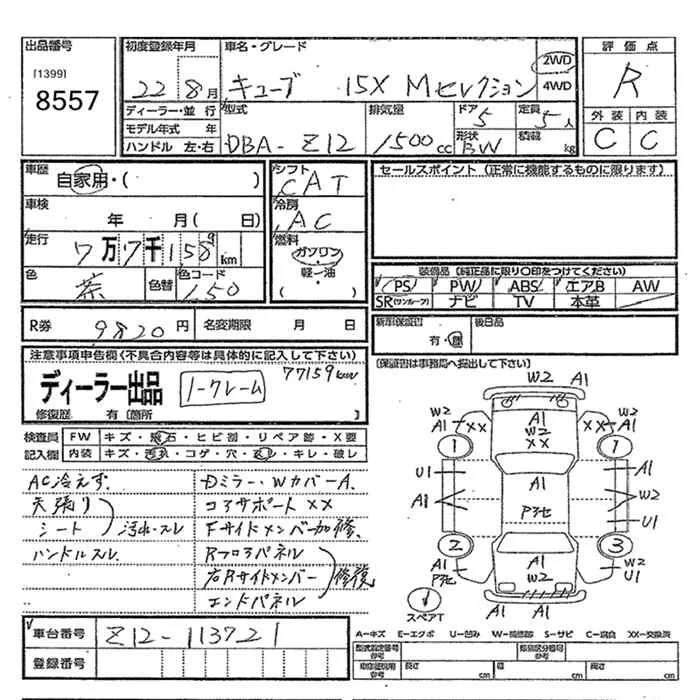 出品番号
[1399]
8557
初度登録年月
22年8月
ディーラー・並行
モデル年式 年
ハンドル 左・右
車名・グレード
キューブ 15X Mセレクション
2WD
4WD
型式
DBA-Z12
排気量
1500cc
ドア
5
形状
BW
定員
5人
積載
kg
評価点
R
外装 内装
C C
車歴
自家用・( )
車検
年 月( 日)
走行
7万7千159km
色
茶
色替
色コード
L50
シフト
CAT
冷房
AC
燃料
ガソリン
軽油
・( )
セールスポイント (正常に機能するものに限ります)
装備品 (純正品に限り○印をつけてください)
PS PW ABS エアB AW
SR(サンルーフ) ナビ TV 本革
R券 9820円 名変期限 月 日
新車保証書
有・無
後日品
(保証書は事務局へ提出して下さい)
注意事項申告欄(不具合内容等は具体的に記入して下さい)
ディーラー出品 ノークレーム 77159km
修復歴 有〔箇所 〕
検査員 FW キズ・飛石・ヒビ割・リペア跡・X要
記入欄 内装 キズ・汚れ・コゲ・穴・スレ・キレ・破レ
AC冷えず.
天張り
シート
汚れ・スレ
ハンドルスレ
Dミラー・WカバーA.
コアサポートXX
Fサイドメンバー加修.
Rフロアパネル
右Rサイドメンバー
エンドパネル
修復
W2 A1
W2
A1 XX
A1
W2
XX
XX W2
A1
1
1
U1
A1
A1
Pヌセ
A1
W2
U1
2
3
A1
A1
W2
W2
U1
A1 A1
スペアT
車台番号 Z12-113721
登録番号
A-キズ E-エクボ U-凹み W-補修跡 S-サビ C-腐食 XX-交換済
型式指定番号
参考
類別区分番号
参考
車検証記載
参考
長さ cm
幅 cm
高さ cm